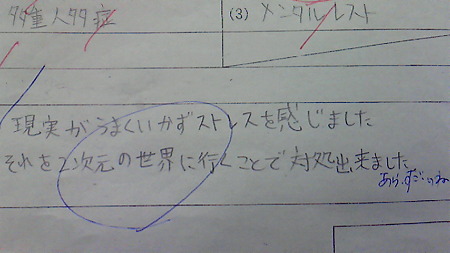 多重人多症
(3) メンタルレスト
現実がうまくいかずストレスを感じました
それを2次元の世界に行くことで対処出来ました
あら、すごいわね